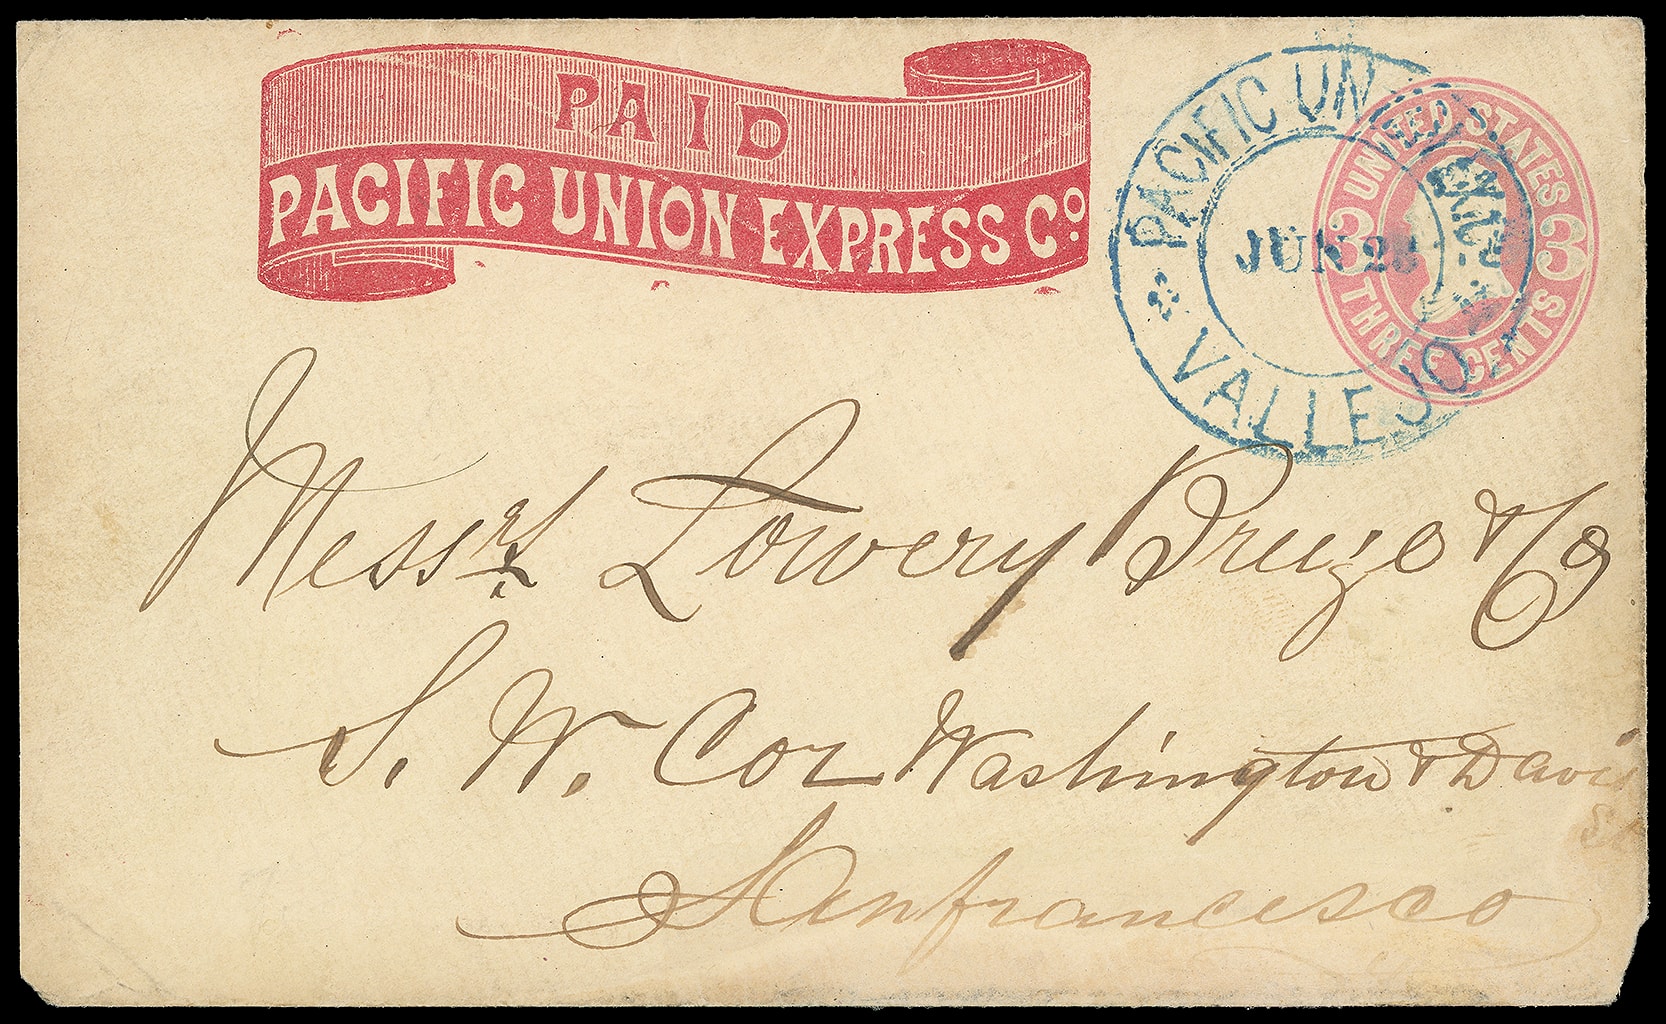 PAID
PACIFIC UNION EXPRESS Co.
PACIFIC UNION EX. CO.
JUN 28
VALLEJO
UNITED STATES
3 3
THREE CENTS
Messrs Lowery & Co
S. W. Cor Washington & Davis
St
Sanfrancesco